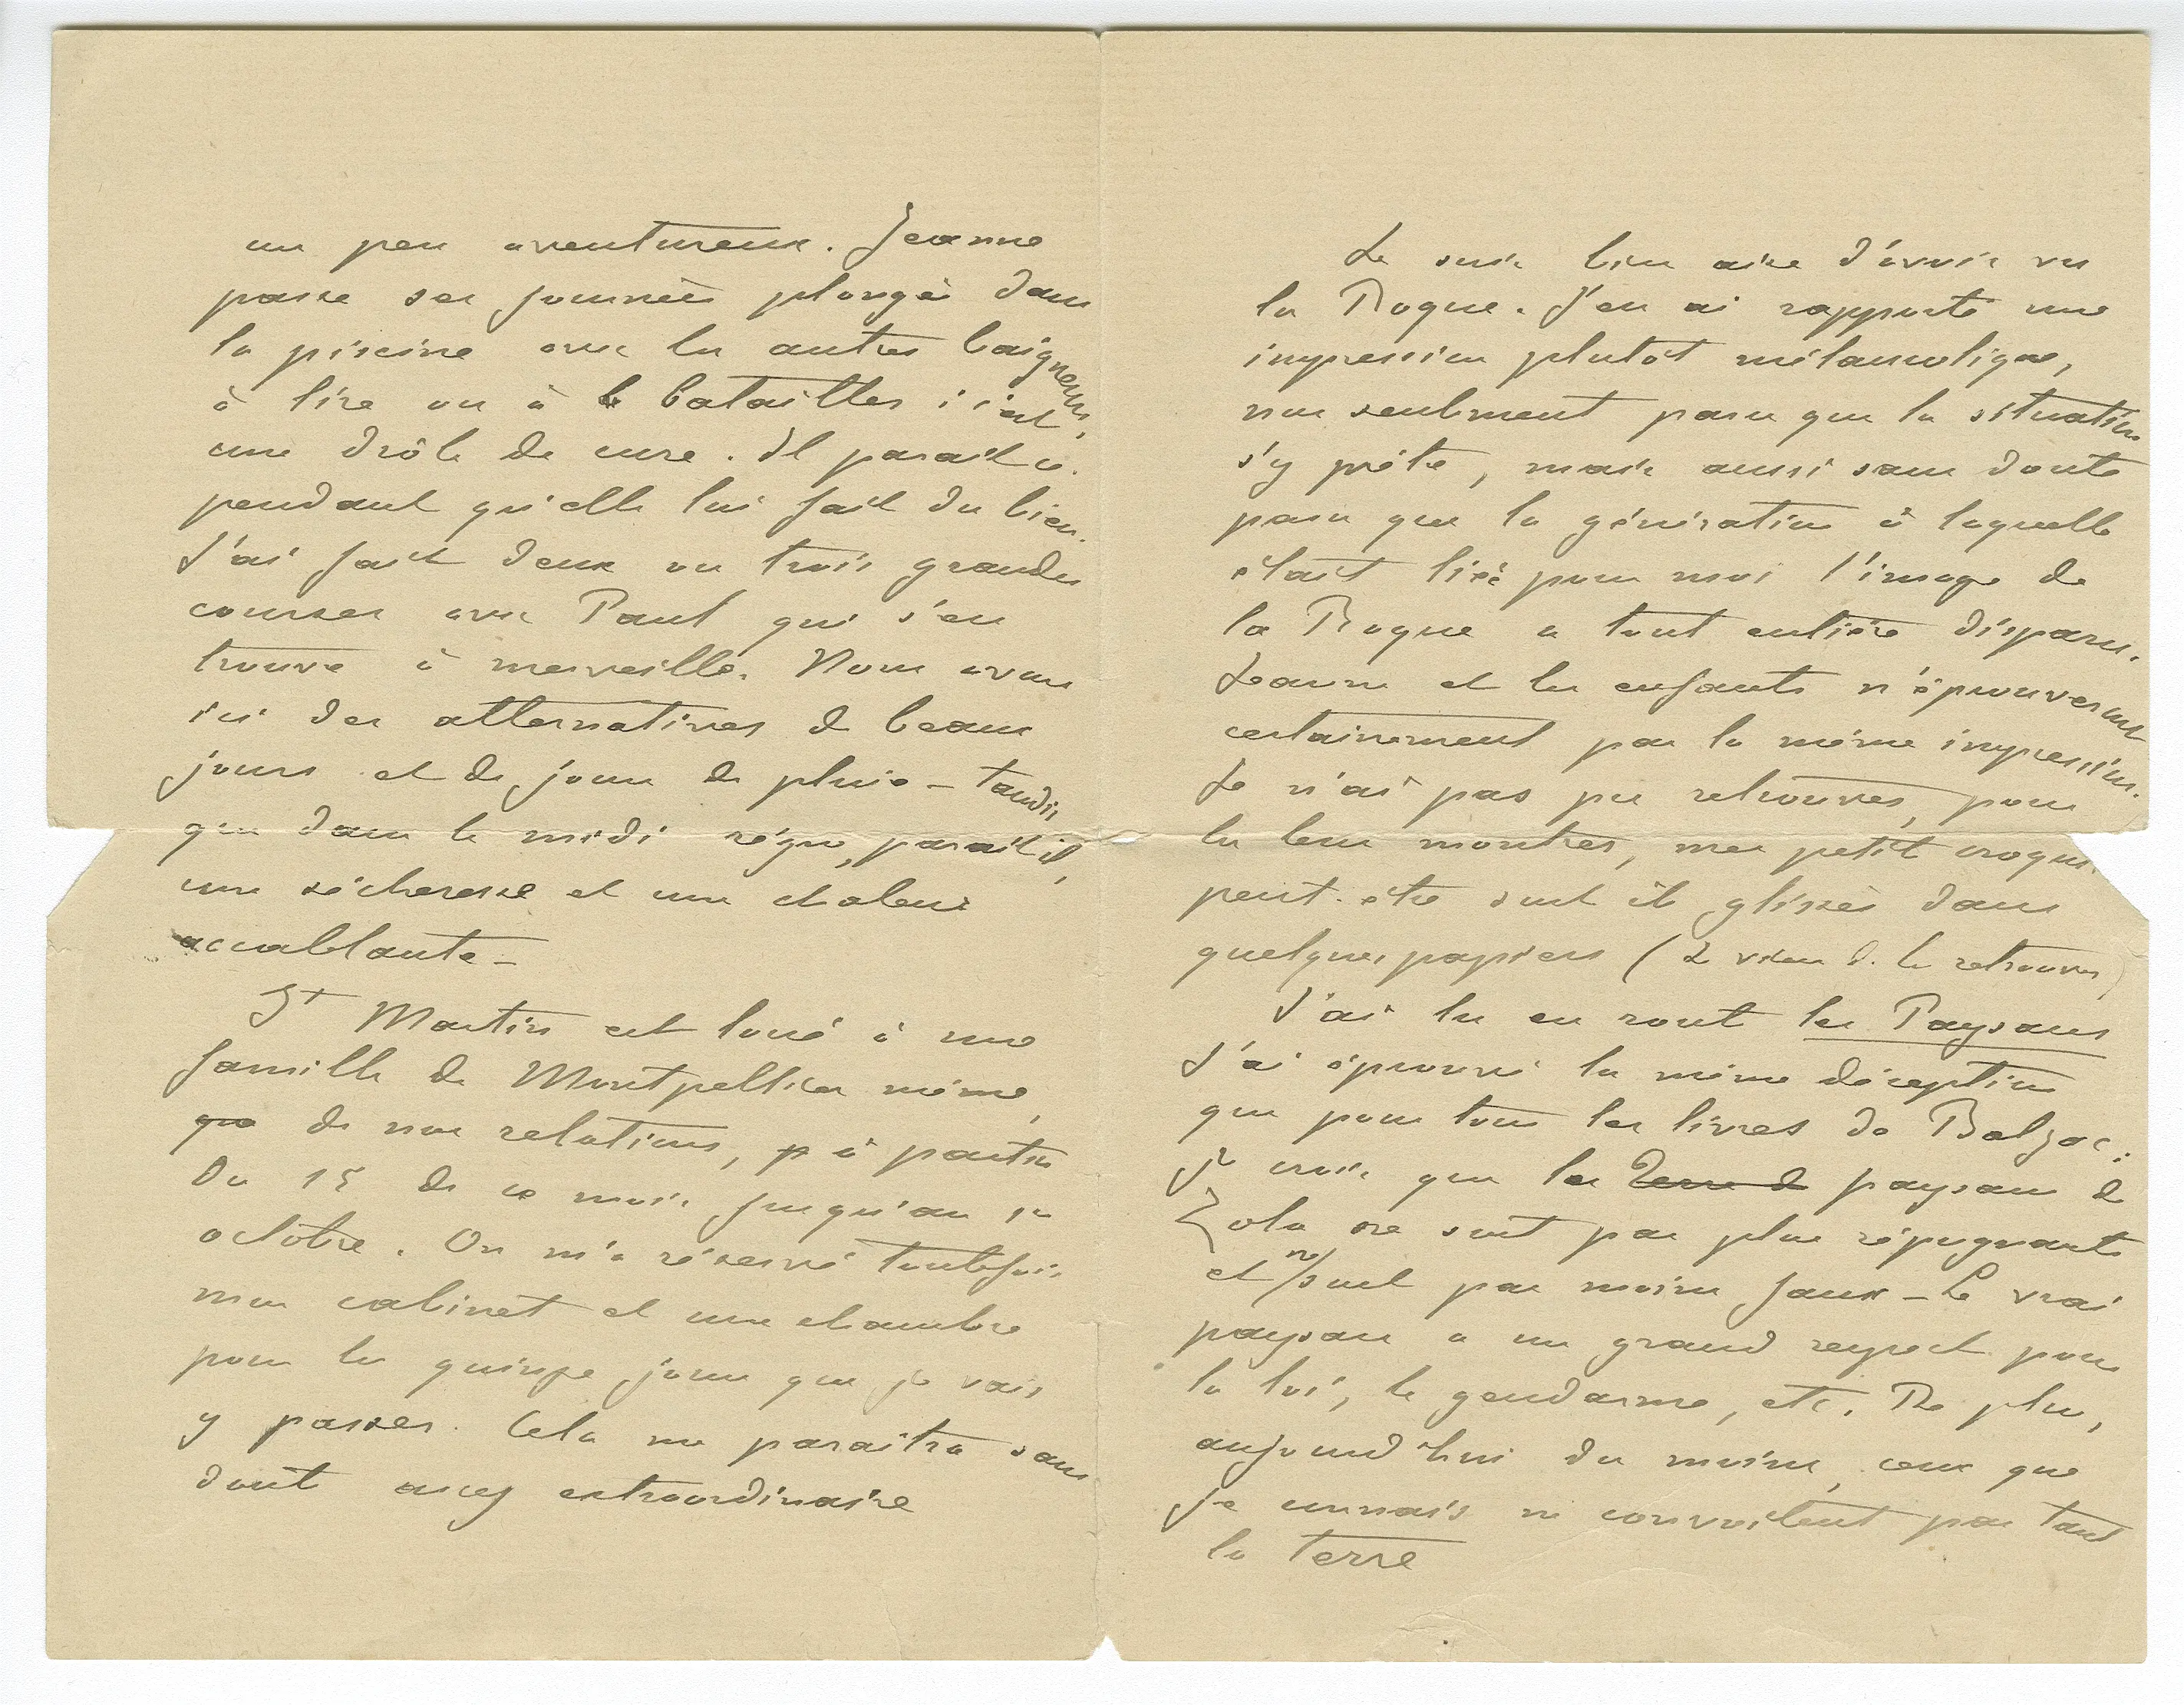 un peu aventureux. Jeanne
passe ses journées plongée dans
la piscine avec les autres baigneurs,
à lire ou à batailler ; c'est
une drôle de cure. Il parait ce-
pendant qu'elle lui fait du bien.
J'ai fait deux ou trois grandes
courses avec Paul qui s'en
trouve à merveille. Nous avons
ici des alternatives de beaux
jours et de jours de pluie – tandis
que dans le midi règne, parait il,
une sécheresse et une chaleur
accablante –
St Martin est loué à une
famille de Montpellier même,
que de nos relations, p à partir
du 15 de ce mois jusqu'au 1er
octobre. On m'a réservé toutefois
mon cabinet et une chambre
pour les quinze jours que je vais
y passer. Cela me paraitra sans
dout assez extraordinaire
Je suis bien aise d'avoir vu
la Roque. J'en ai rapporté une
impression plutôt mélancolique,
non seulement parce que la situation
s'y prête, mais aussi sans doute
parce que la génération à laquelle
était liée pour moi l'image de
la Roque a tout entière disparu.
Jeanne et les enfants n'éprouveront
certainement pas la même impression.
Je n'ai pas pu retrouver, pour
les leur montrer, mes petits croquis.
peut-être sont ils glissés dans
quelques papiers (Je viens de les retrouver)
J'ai lu en rout les Paysans
J'ai éprouvé la même déception
que pour tous les livres de Balzac :
je crois que les Terre de paysans de
Zola ne sont pas plus répugnants
et ne sont pas moins faux – Le vrai
paysan a un grand respect pour
la loi, le gendarme, etc. De plus,
aujourd'hui du moins, ceux que
je connais ne convoitent pas tant
la terre